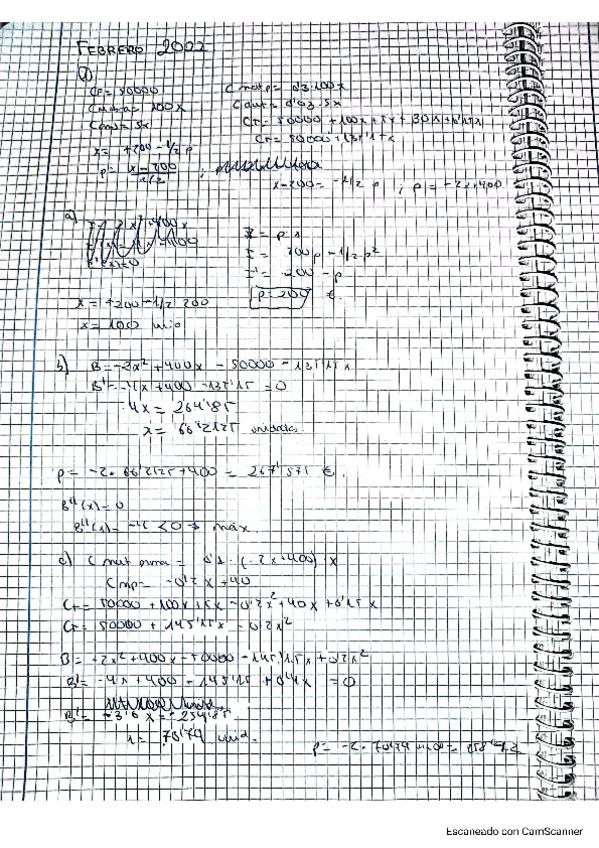 FEBRERO 2022
1
CF = 50000
C mat p = 0'3·100x
C mano = 100x
C aut = 0'03·5x
C env = 5x
CT = 50000 + 100x + 5x + 30x + 0'15x
CT = 50000 + 135'15x
x = +200 - 1/2 p
p = x - 200 / -1/2 ;
x - 200 = -1/2 p ; p = -2x + 400
a)
I = p·x
I = 200p - 1/2 p²
B'(x) = 0
I' = 200 - p
p = 200 €.
x = +200 - 1/2 200
x = 100 unid
b) B = -2x² + 400x - 50000 - 135'15x
B' = -4x + 400 - 135'15 = 0
4x = 264'85
x = 66'2125 unidades.
p = -2·66'2125 + 400 = 267'575 €.
B''(x) = 0
B''(x) = -4 < 0 → máx.
c) C mat prima = 0'1·(-2x+400)·x
Cmp = -0'2x + 40
CT = 50000 + 100x + 5x - 0'2x² + 40x + 0'15x
CT = 50000 + 145'15x - 0'2x²
B = -2x² + 400x - 50000 - 145'15x + 0'2x²
B' = -4x + 400 - 145'15 + 0'4x = 0
B' = -3'6x = -254'85
x = 70'79 unid.
p = -2·70'79 + 400 = 258'42
Escaneado con CamScanner